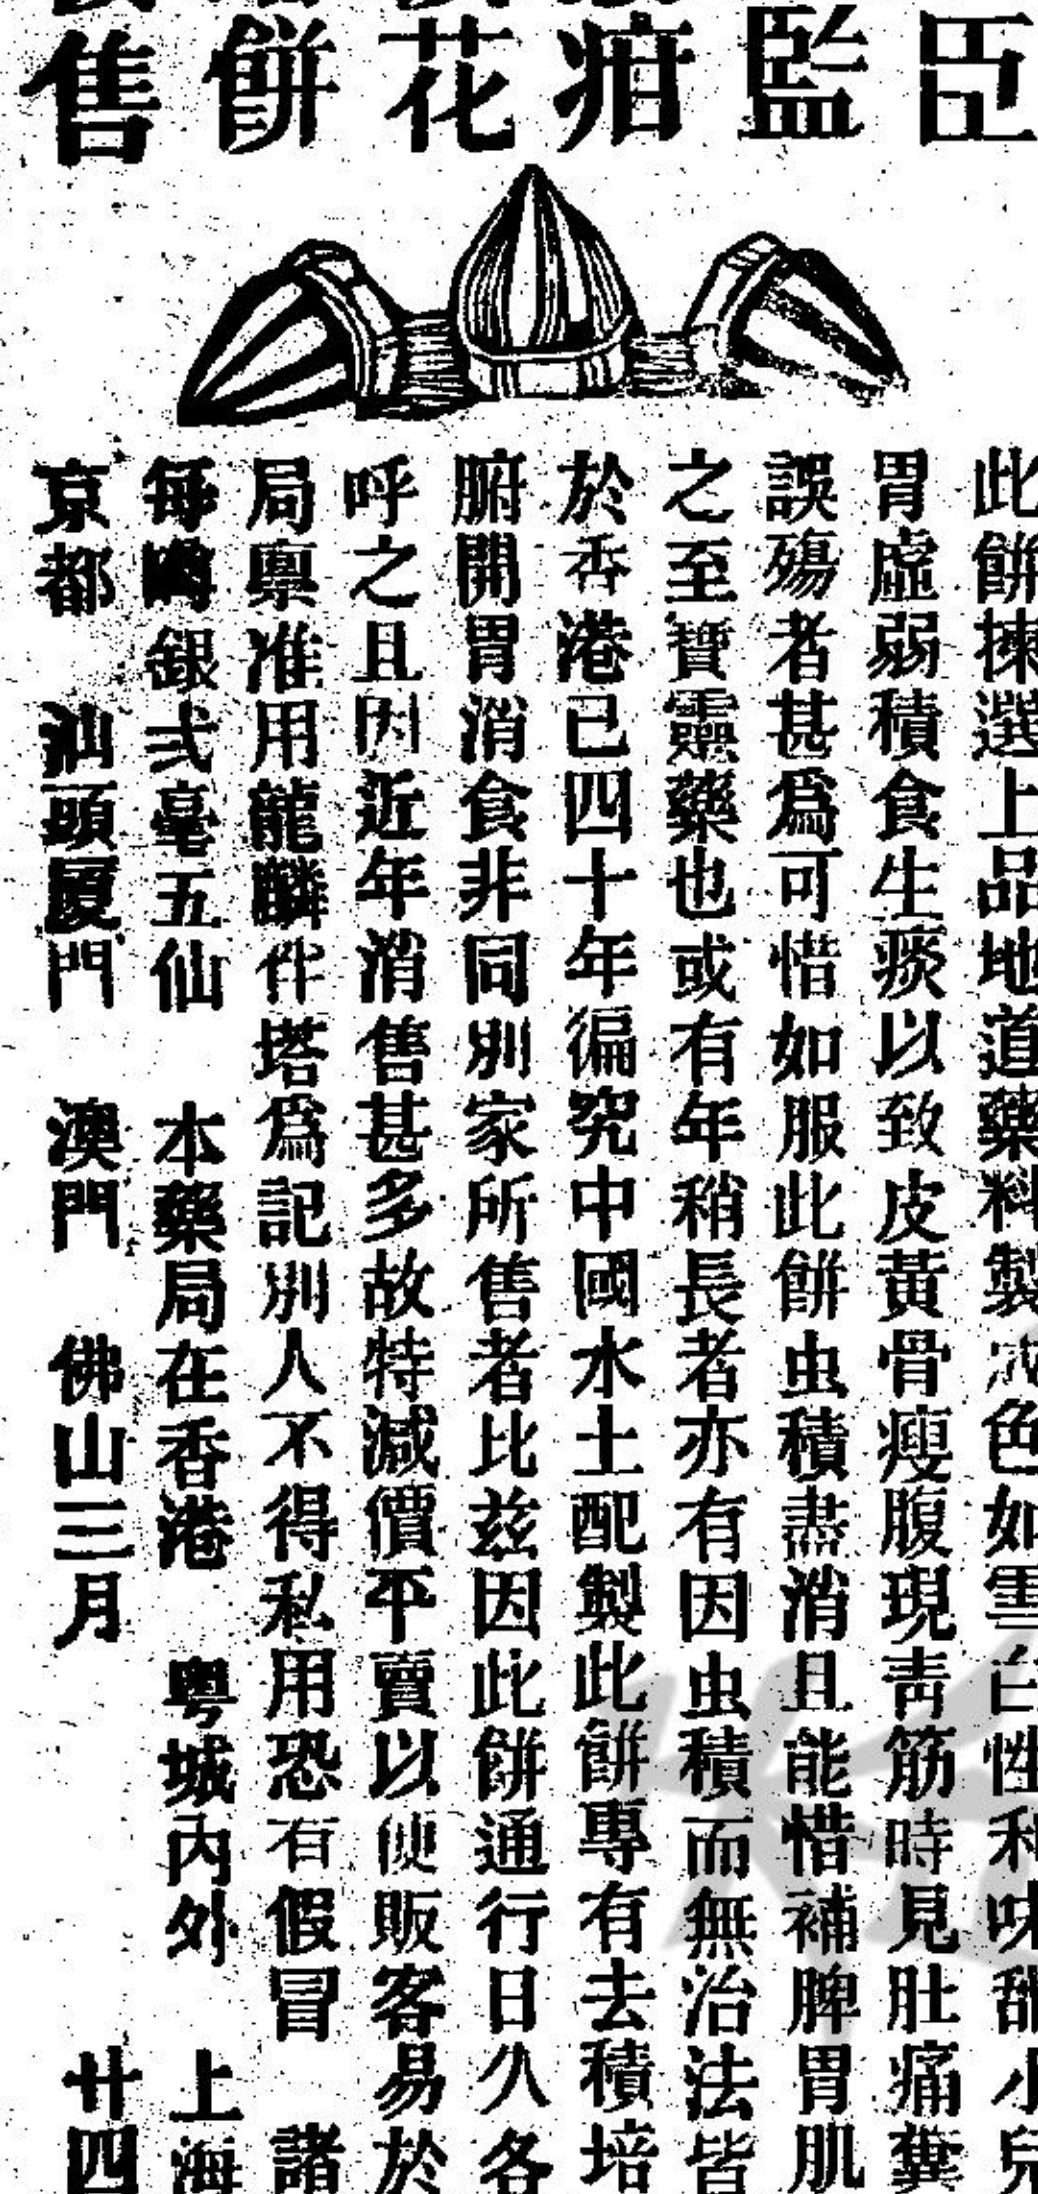 臣監疳花餅售
此餅揀選上品地道藥料製成色如雪白性和味甜小兒
胃虛弱積食生痰以致皮黃骨瘦腹現靑筋時見肚痛糞
誤殤者甚爲可惜如服此餅虫積盡消且能惜補脾胃肌
之至寶靈藥也或有年稍長者亦有因虫積而無治法皆
於香港已四十年徧究中國水土配製此餅專有去積培
腑開胃消食非同別家所售者比茲因此餅通行日久各
呼之且因近年消售甚多故特減價平賣以便販客易於
局稟准用龍麟件塔爲記別人不得私用恐有假冒 諸
每 銀弍毫五仙 本藥局在香港 粤城內外 上海
京都 汕頭厦門 澳門 佛山三月 廿四